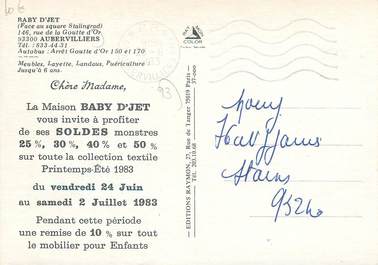 BABY D'JET
(Face au square Stalingrad)
146, rue de la Goutte d'Or
93300 AUBERVILLIERS
Tél. : 833 44 31
Autobus : Arrêt Goutte d'Or 150 et 170
Meubles, Layette, Landaus, Puériculture
Jusqu'à 6 ans.
Chère Madame,
La Maison BABY D'JET
vous invite à profiter
de ses SOLDES monstres
25%, 30%, 40% et 50%
sur toute la collection textile
Printemps-Été 1983
du vendredi 24 Juin
au samedi 2 Juillet 1983
Pendant cette période
une remise de 10% sur tout
le mobilier pour Enfants
COLOR
EDITIONS RAYMON, 37, Rue de Tanger 75019 Paris
Tél. 203.10.68
37-000
93
Stains
93240